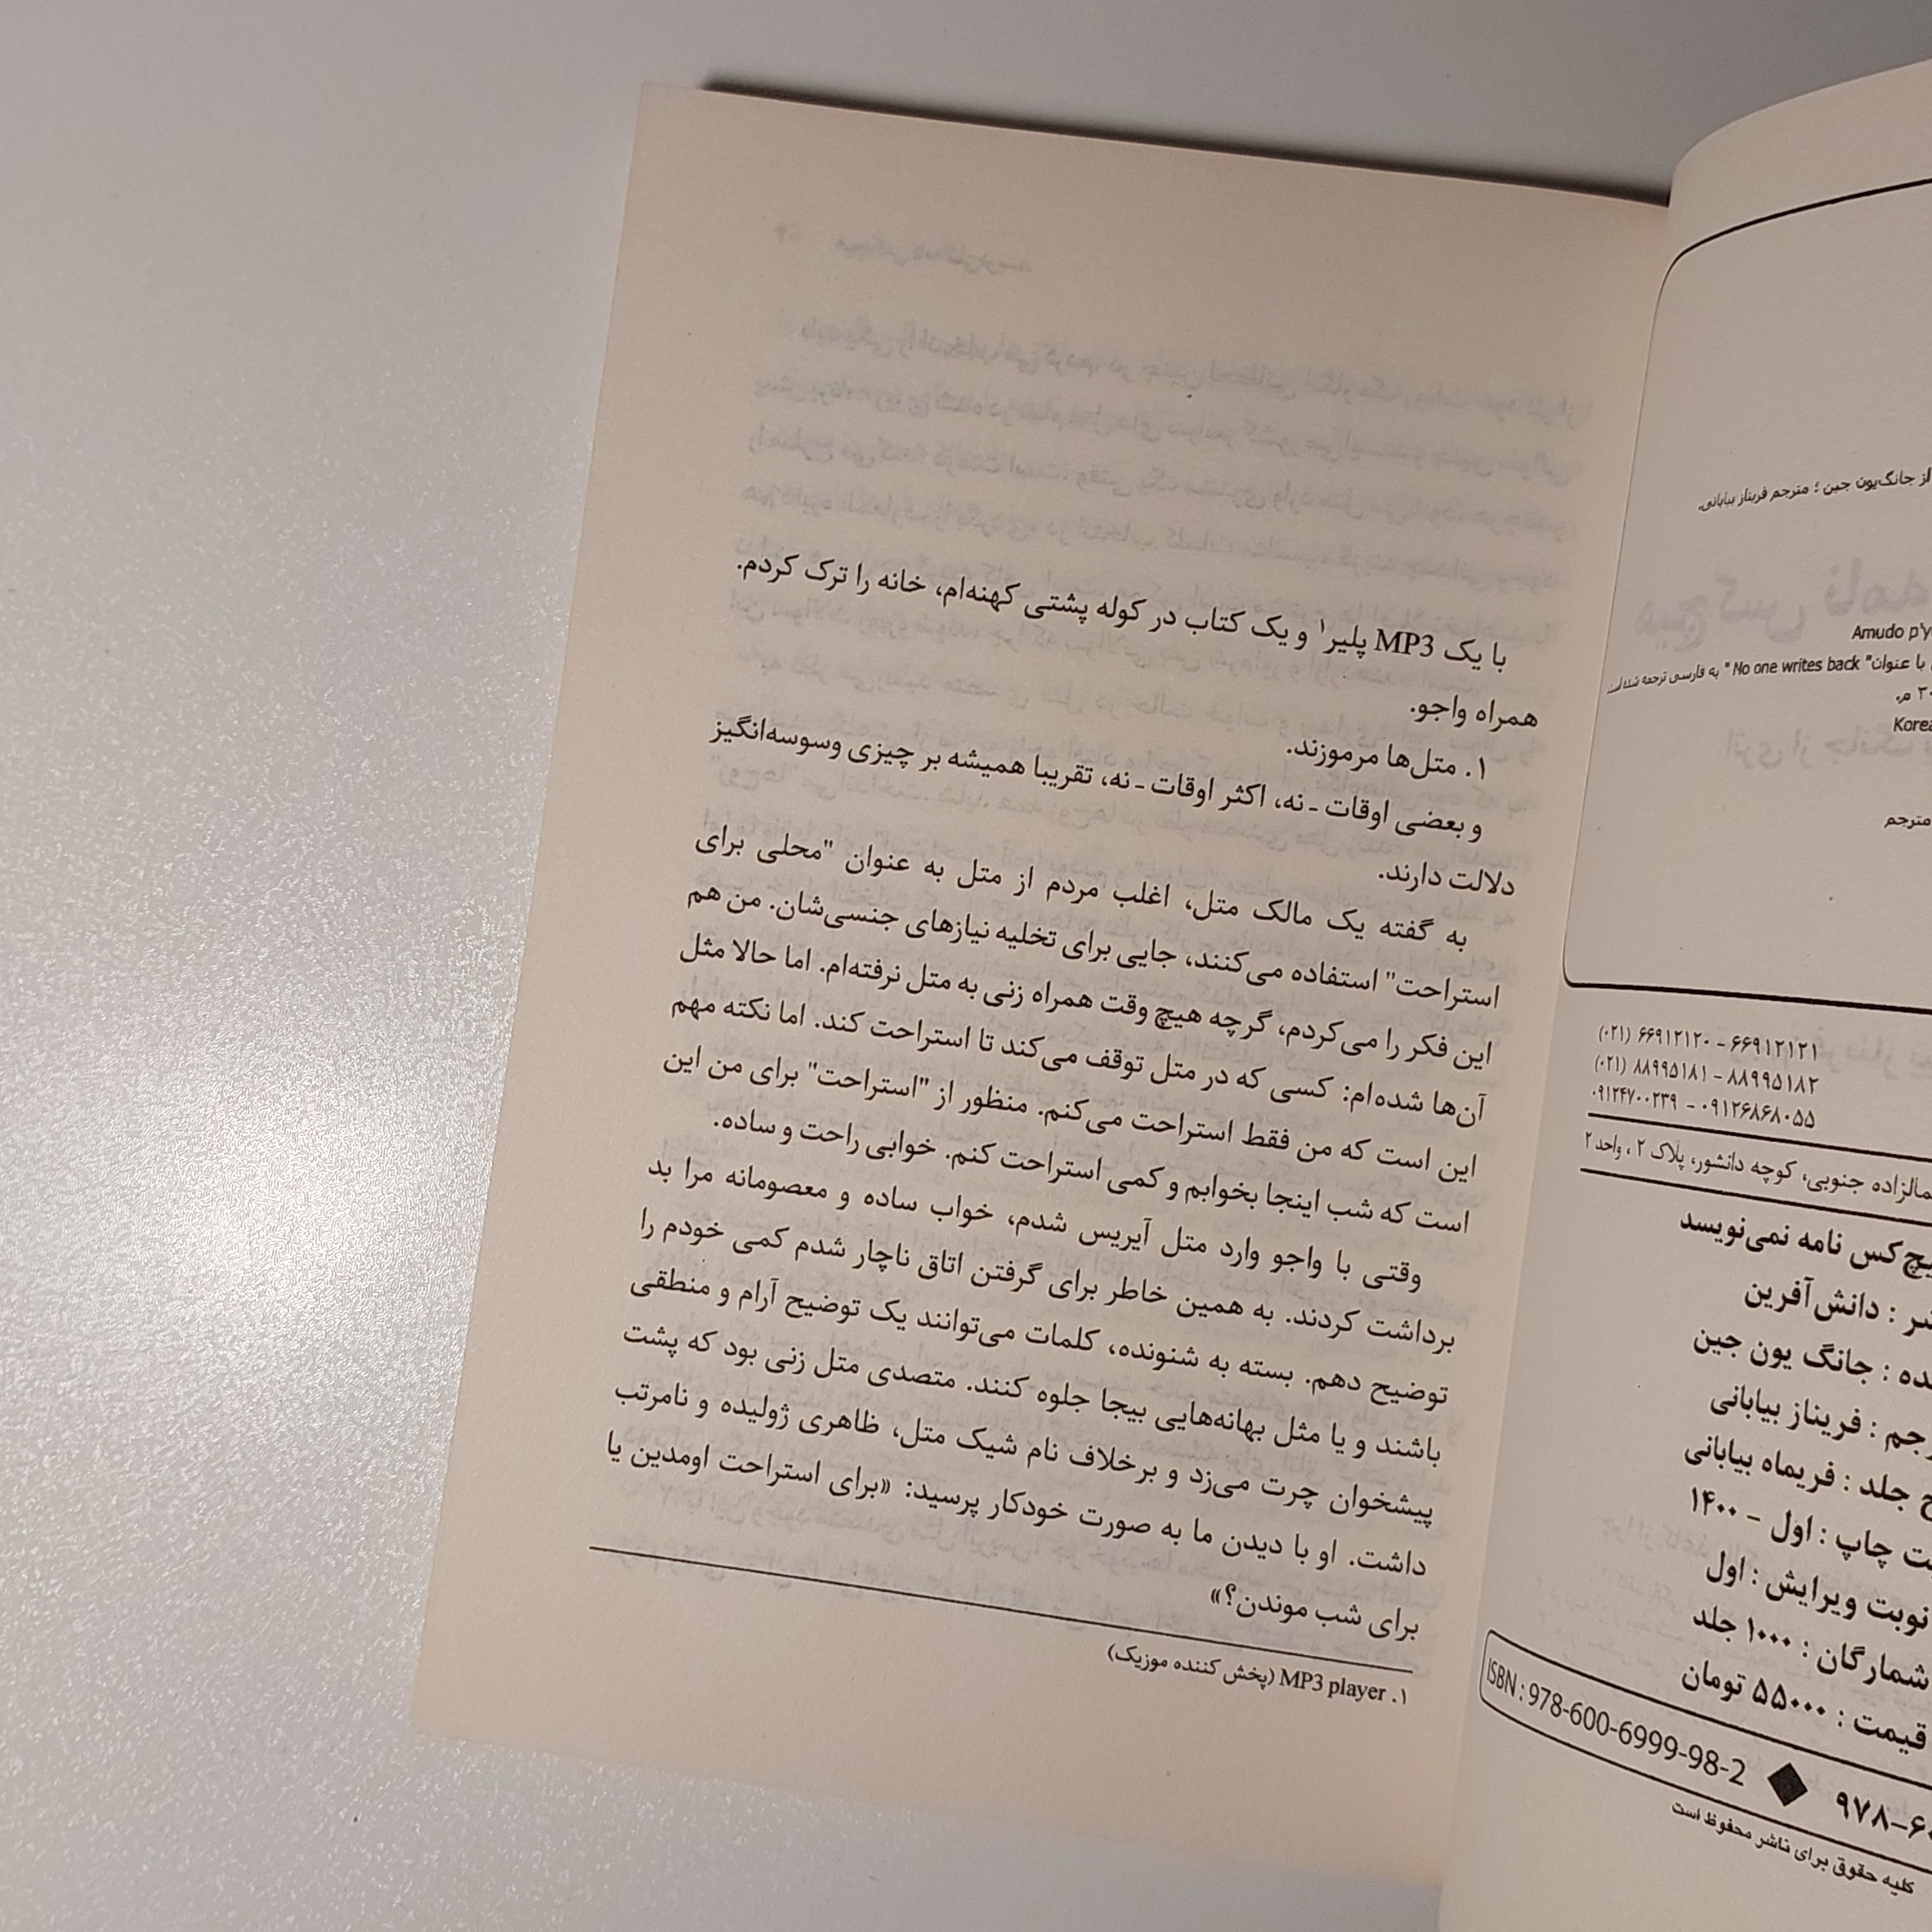 با یک MP3 پلیر۱ و یک کتاب در کوله پشتی کهنه‌ام، خانه را ترک کردم.
همراه واجو.
۱. متل‌ها مرموزند.
و بعضی اوقات ـ نه، اکثر اوقات ـ نه، تقریبا همیشه بر چیزی وسوسه‌انگیز
دلالت دارند.
به گفته یک مالک متل، اغلب مردم از متل به عنوان "محلی برای
استراحت" استفاده می‌کنند، جایی برای تخلیه نیازهای جنسی‌شان. من هم
این فکر را می‌کردم، گرچه هیچ وقت همراه زنی به متل نرفته‌ام. اما حالا مثل
آن‌ها شده‌ام: کسی که در متل توقف می‌کند تا استراحت کند. اما نکته مهم
این است که من فقط استراحت می‌کنم. منظور از "استراحت" برای من این
است که شب اینجا بخوابم و کمی استراحت کنم. خوابی راحت و ساده.
وقتی با واجو وارد متل آیریس شدم، خواب ساده و معصومانه مرا بد
برداشت کردند. به همین خاطر برای گرفتن اتاق ناچار شدم کمی خودم را
توضیح دهم. بسته به شنونده، کلمات می‌توانند یک توضیح آرام و منطقی
باشند و یا مثل بهانه‌هایی بیجا جلوه کنند. متصدی متل زنی بود که پشت
پیشخوان چرت می‌زد و برخلاف نام شیک متل، ظاهری ژولیده و نامرتب
داشت. او با دیدن ما به صورت خودکار پرسید: «برای استراحت اومدین یا
برای شب موندن؟»
۱. MP3 player (پخش کننده موزیک)
از جانگ‌یون جین ؛ مترجم فریناز بیابانی.
Amudo
با عنوان" No one writes back " به فارسی ترجمه شده است
م.
مترجم
۶۶۹۱۲۱۲۱ - ۶۶۹۱۲۱۲۰ (۰۲۱)
۸۸۹۹۵۱۸۲ - ۸۸۹۹۵۱۸۱ (۰۲۱)
۰۹۱۲۶۸۶۸۰۵۵ - ۰۹۱۲۴۷۰۰۲۳۹
جنوبی، کوچه دانشور، پلاک ۲ ، واحد ۲
کس نامه نمی‌نویسد
: دانش‌آفرین
: جانگ یون جین
: فریناز بیابانی
جلد : فریماه بیابانی
چاپ : اول - ۱۴۰۰
نوبت ویرایش : اول
شمارگان : ۱۰۰۰ جلد
قیمت : ۵۵۰۰۰ تومان
ISBN : 978-600-6999-98-2 ◆ ۹۷۸-۶
کلیه حقوق برای ناشر محفوظ است